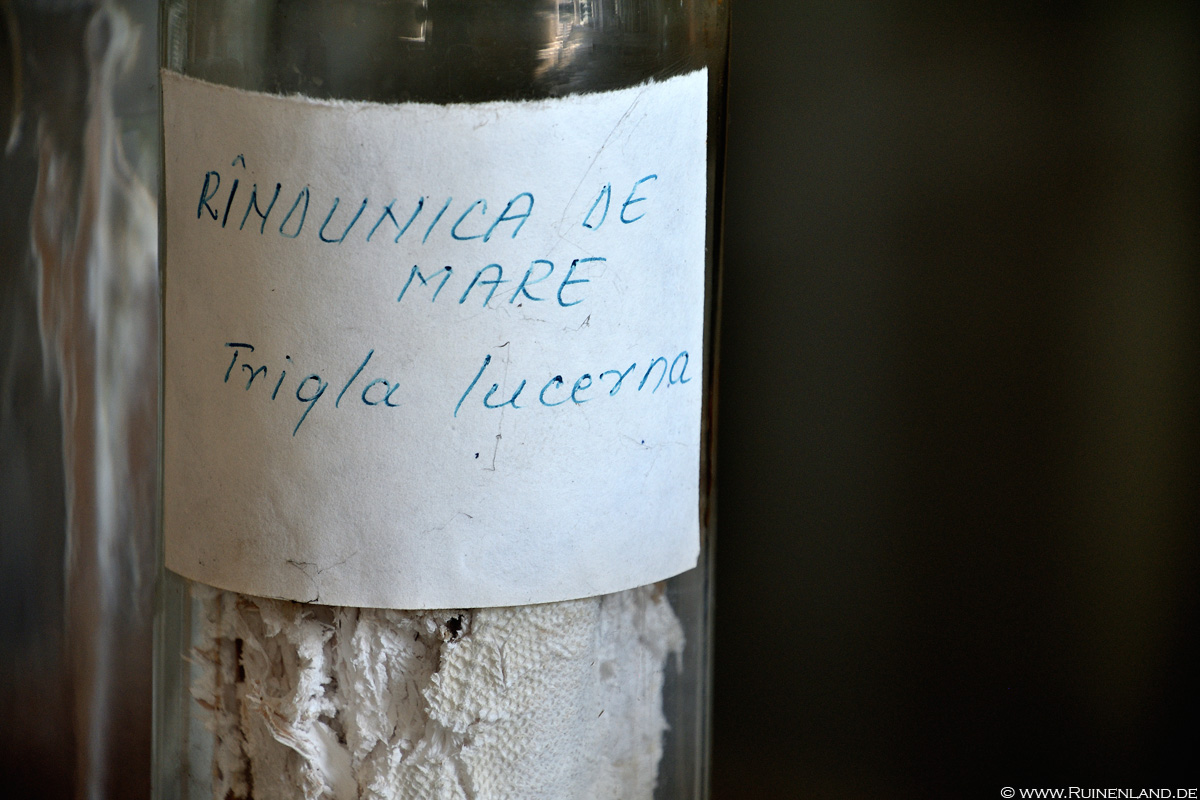 RÎNDUNICA DE
MARE
Trigla lucerna
© www.Ruinenland.de